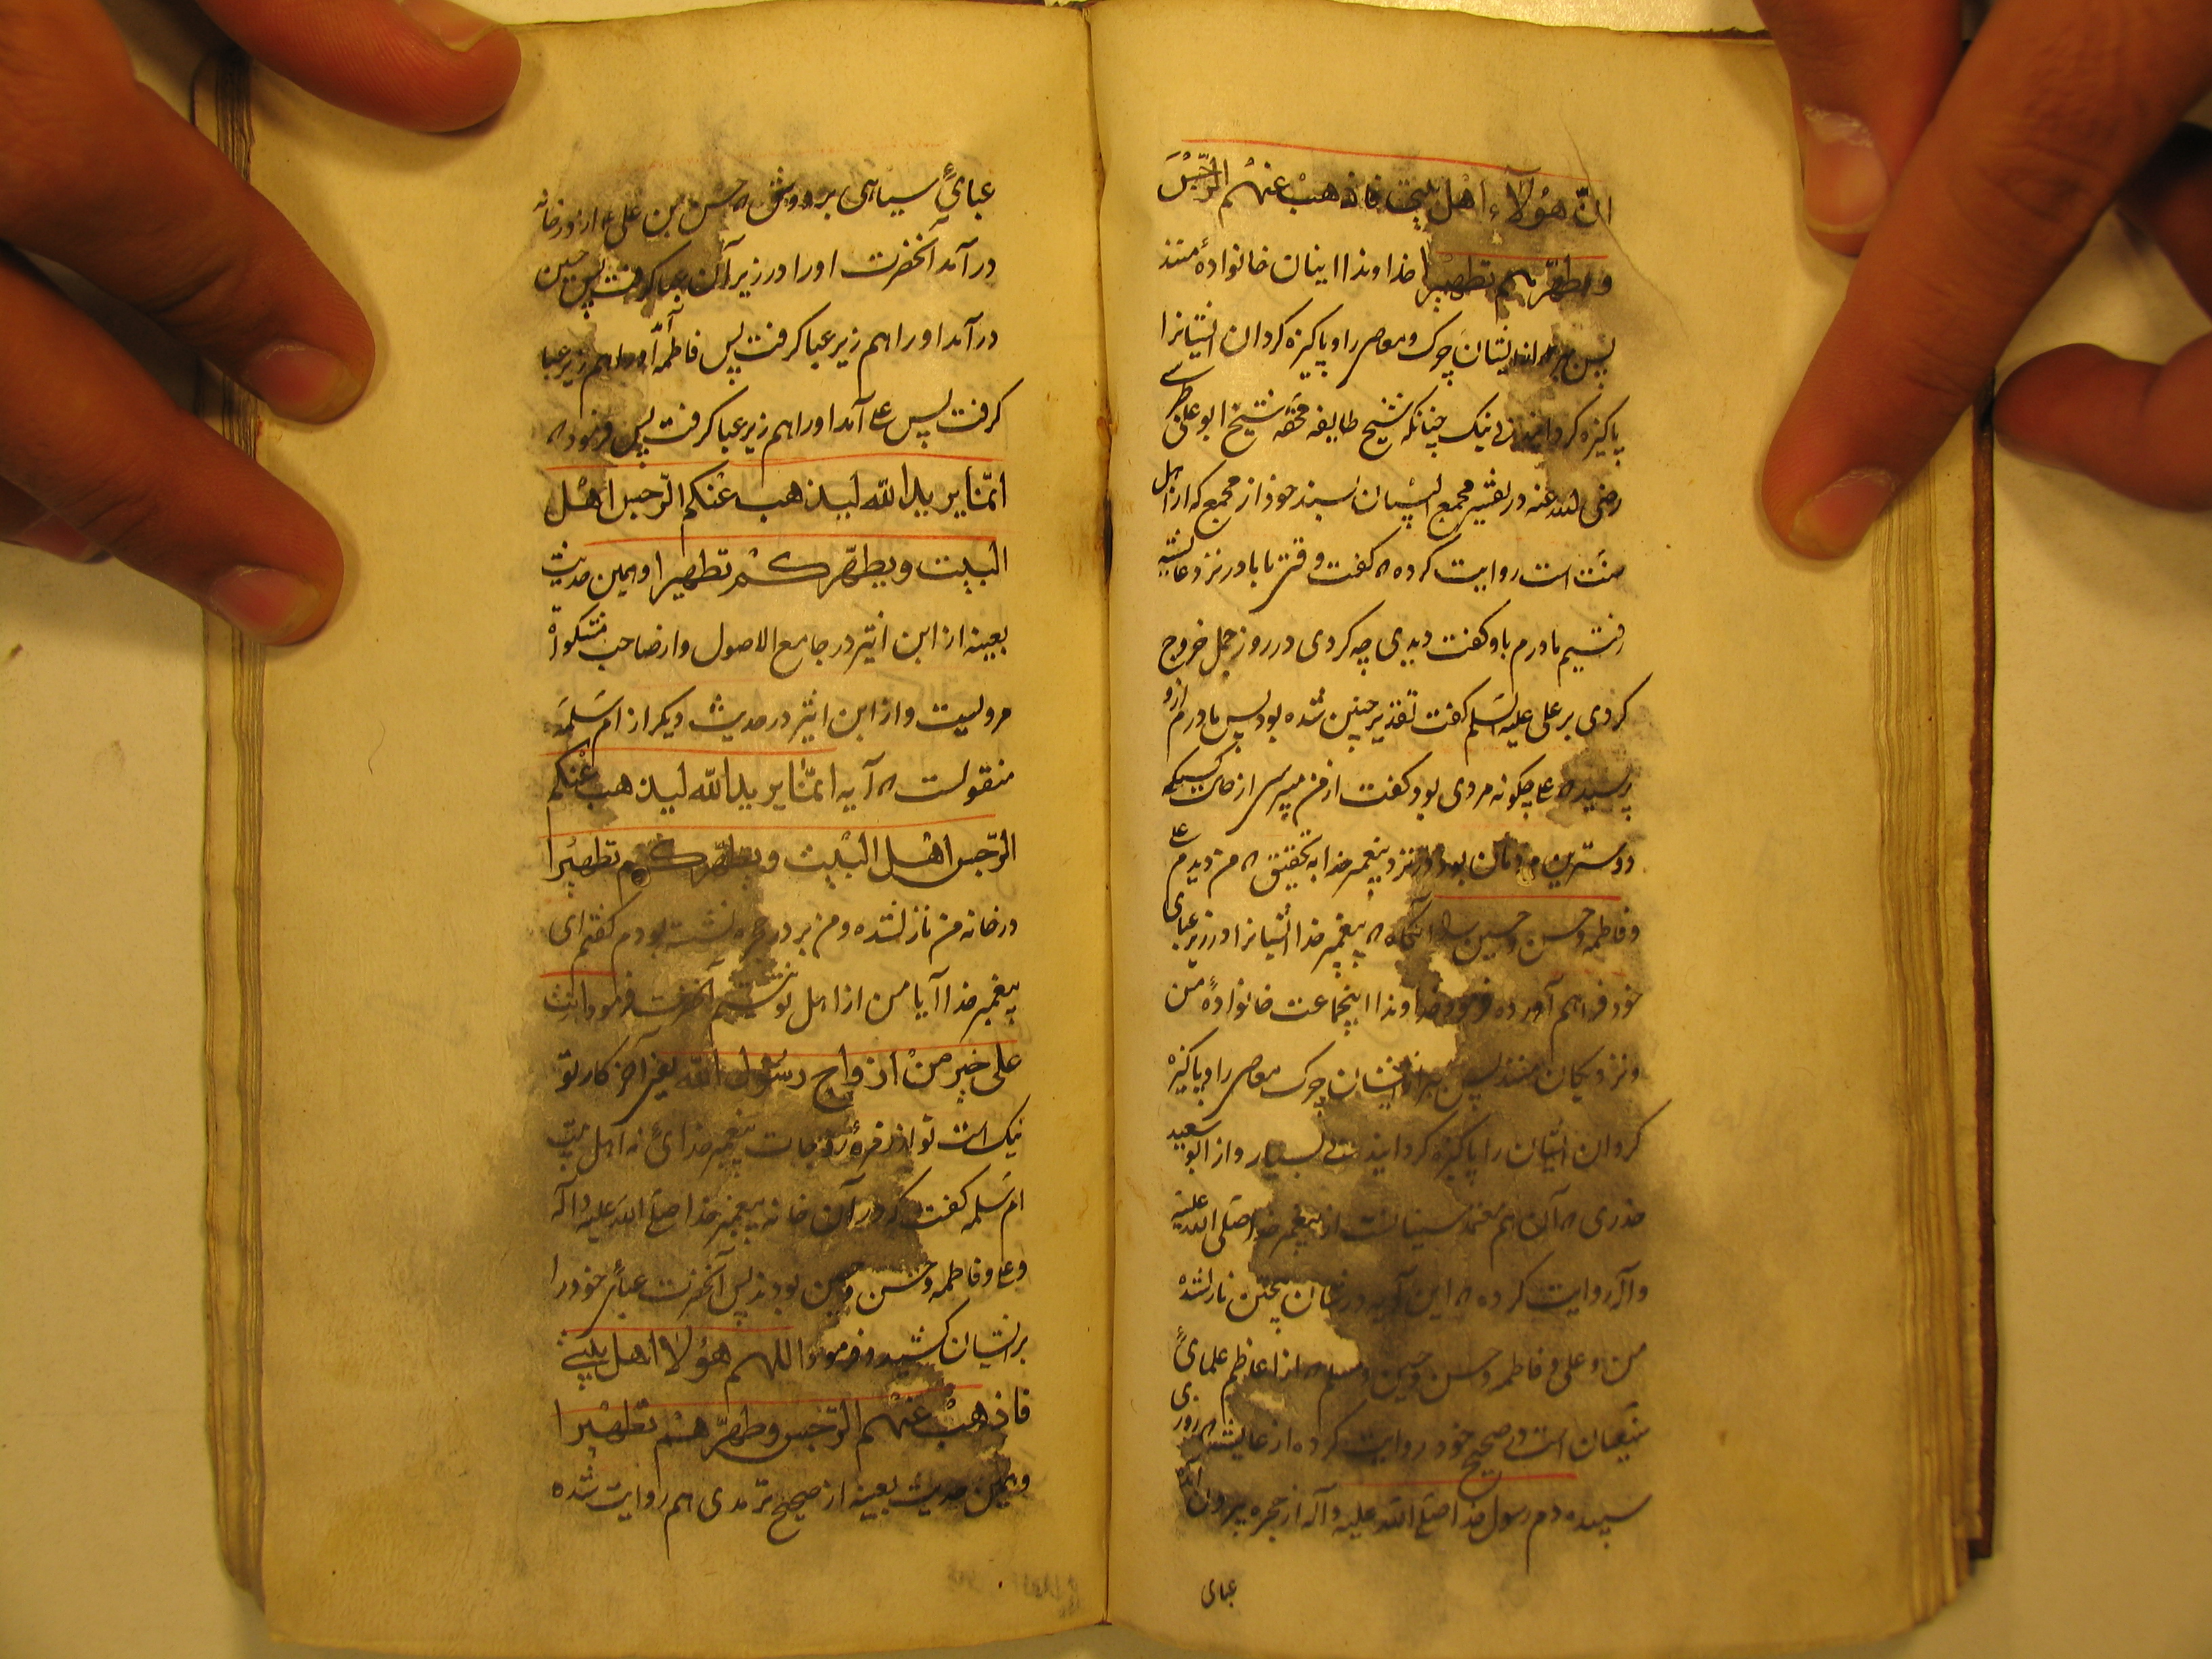 انّ هؤلاء اهل بیتی فاذهب عنهم الرّجس
و یطهّرهم تطهیرا خداوندا اینان خانوادهٔ منند
پس ببر از ایشان چرک معاصی را و پاکیزه کردان ایشانرا
پاکیزه کردانیدنی نیک چنانکه شیخ طایفه محقه شیخ ابو علی طبرسی
رضی الله عنه در تفسیر مجمع البیان بسند خود از مجمع که از اهل
سنت است روایت کرده که کفت وقتی با مادر نزد عایشه
رفتیم مادرم باو کفت دیدی چه کردی در روز جمل خروج
کردی بر علی علیه السلم کفت تقدیر چنین شده بود پس مادرم ازو
پرسید که علی چکونه مردی بود کفت از من میپرسی از حال کسیکه
دوسترین مردمان بود در نزد پیغمبر خدا به تحقیق که من دیدم علی
و فاطمه و حسن و حسین را آنکاه که پیغمبر خدا ایشانرا در زیر عبای
خود فراهم آورده فرمود خداوندا اینجماعت خانوادهٔ من
و نزدیکان منند پس ببر از ایشان چرک معاصی را و پاکیزه
کردان ایشان را پاکیزه کردانیدنی بسیار و از ابو سعید
خدری که آن هم معتمد سنیانست از پیغمبر خدا صلی الله علیه
و آله روایت کرده که این آیه در شان پنجتن نازلشده
من و علی و فاطمه و حسن و حسین و مسلم که از اعاظم علمای
سنیان است در صحیح خود روایت کرده از عایشه که روزی
سپیده دم رسول خدا صلی الله علیه و آله از حجره بیرون آمد
عبای
عبایٔ سیاهی بر دوش که حسن بن علی ع از در خانه
در آمد آنحضرت او را در زیر آن عبا کرفت پس حسین
در آمد او را هم زیر عبا کرفت پس فاطمه آمد او را هم زیر عبا
کرفت پس علی آمد او را هم زیر عبا کرفت پس فرمود که
انّما یرید الله لیذهب عنکم الرّجس اهل
البیت و یطهّرکم تطهیرا و همین حدیث
بعینه از ابن اثیر در جامع الاصول و از صاحب مشکوة
مرویست و از ابن اثیر در حدیث دیکر از ام سلمه
منقولست که آیه انّما یرید الله لیذهب عنکم
الرّجس اهل البیت و یطهّرکم تطهیرا
در خانه من نازلشده و من بر در حجره نشسته بودم کفتم ای
پیغمبر خدا آیا من از اهل تو نیستم آنحضرت فرمود انت
علی خیر من ازواج رسول الله یعنی آخر کار تو
نیک است تو از زمرهٔ زوجات پیغمبر خدایٔ نه اهل بیت
ام سلمه کفت که در آن خانه پیغمبر خدا صلی الله علیه و آله
و علی و فاطمه و حسن و حسین بودند پس آنحضرت عبای خود را
بر ایشان کشید و فرمود اللهم هؤلا اهل بیتی
فاذهب عنهم الرّجس و طهّرهم تطهیرا
و همین حدیث بعینه از صحیح ترمدی هم روایت شده